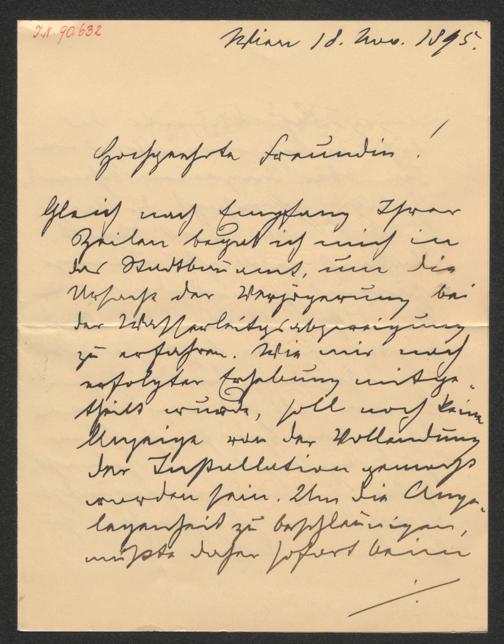 I.N. 90.632
Wien 18. Nov. 1895.
Hochgeehrte Freundin!
Gleich nach Empfang Ihrer
Zeilen begab ich mich in
das Stadtbauamt, um die
Ursache der Verzögerung bei
der Wasserleitgsabzweigung
zu erfahren. Wie mir nach
erfolgter Erhebung mitge-
theilt wurde, soll noch keine
Anzeige von der Vollendung
der Installation gemacht
worden sein. Um die Ange-
legenheit zu beschleunigen,
müßte daher sofort beim
./.